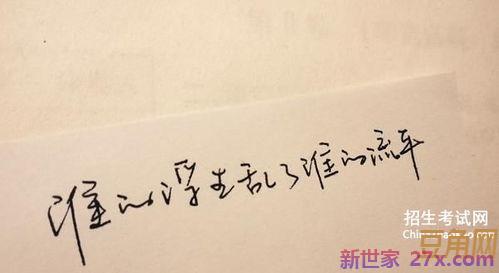 谁的浮生乱了谁的流年
招生考试网
豆角网
新世家 27x.com